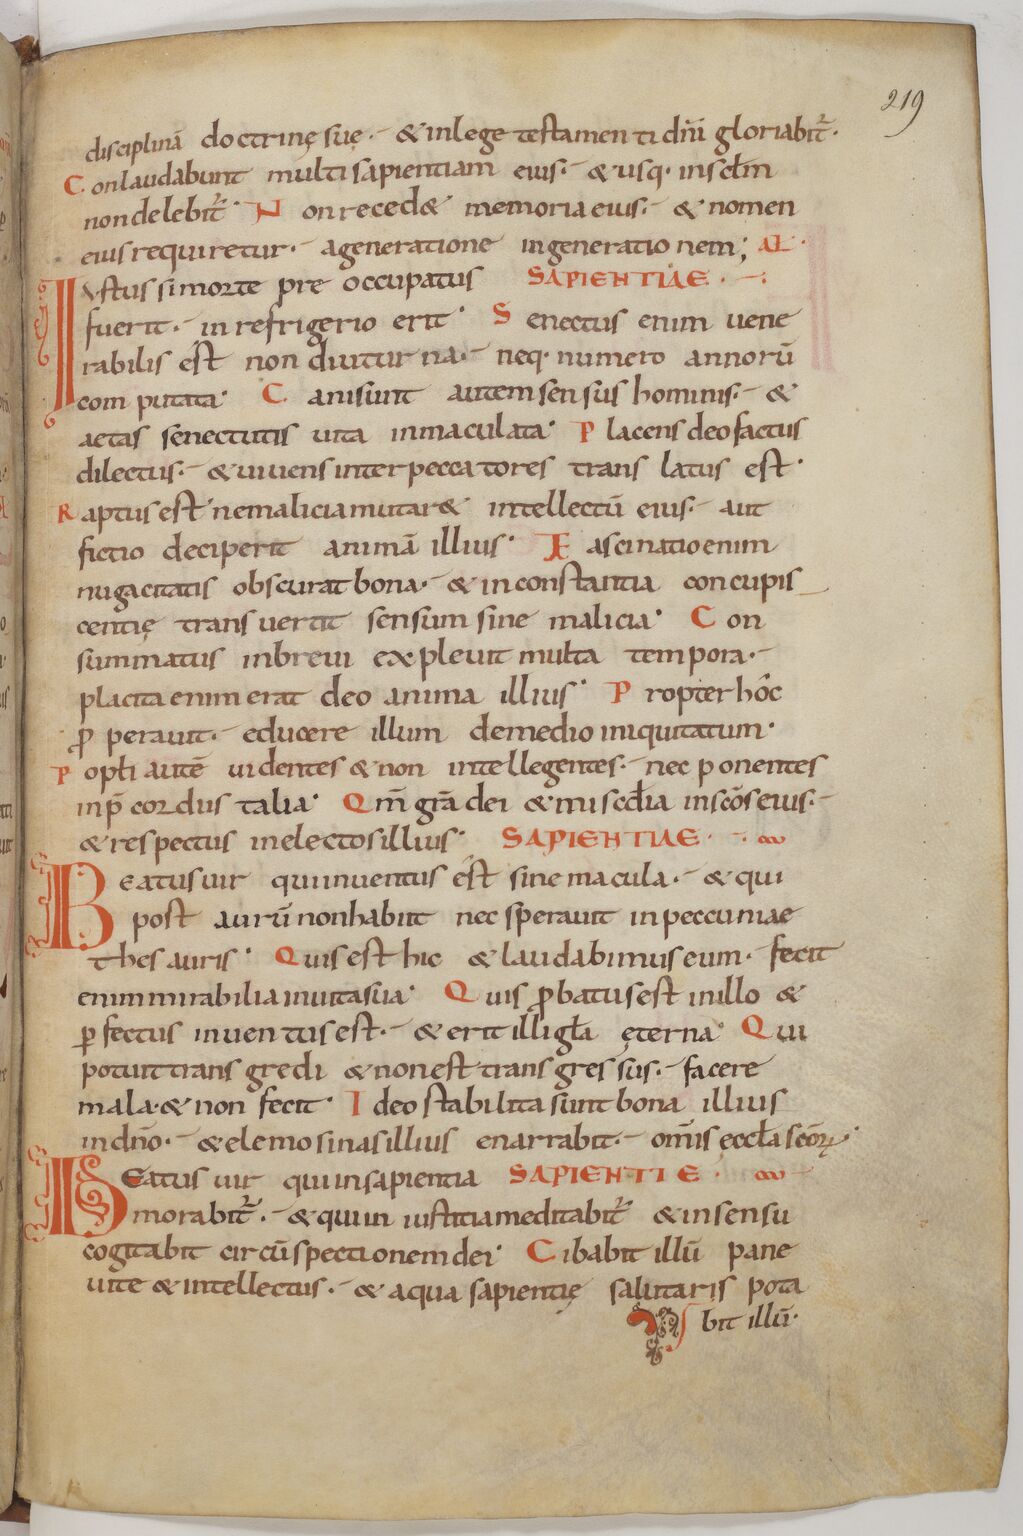 219
disciplinā doctrinę suę. & in lege testamenti dñi gloriabit̃.
Conlaudabunt multi sapientiam eius. & usq. in sc̄lm
non delebit̃. Non reced& memoria eius. & nomen
eius requiretur. a generatione in generationem; AL.
Iustus si morte preoccupatus SAPIENTIAE.
fuerit. in refrigerio erit. Senectus enim uene
rabilis est non diuturna. neq. numero annorū
computata. Cani sunt autem sensus hominis. &
aetas senectutis uita inmaculata. Placens deo factus
dilectus. & uiuens inter peccatores translatus est.
Raptus est ne malicia mutar& intellectū eius. aut
fictio deciperit animā illius. Fascinatio enim
nugacitatis obscurat bona. & inconstantia concupis
centię transuertit sensum sine malicia. Con
summatus in breui expleuit multa tempora.
placita enim erat deo anima illius. Propter hôc
ꝓperauit. educere illum de medio iniquitatum.
Popli autē uidentes & non intellegentes. nec ponentes
in p̄cordiis talia. Qm̄ gr̄a dei & miscd̄ia in sc̄os eius.
& respectus in electos illius. SAPIENTIAE.
Beatus uir qui inuentus est sine macula. & qui
post aurū non habiit nec sperauit in peccuniae
thesauris. Quis est hic & laudabimus eum. fecit
enim mirabilia in uita sua. Quis ꝓbatus est in illo &
ꝑfectus inuentus est. & erit illi gl̄a ęterna. Qui
potuit transgredi & non est transgressus. facere
mala. & non fecit. Ideo stabilita sunt bona illius
in dño. & elemosinas illius enarrabit. om̄is eccl̄a sc̄oꝝ.
Beatus uir qui in sapientia SAPIENTIE.
morabit̃. & qui in iustitia meditabit̃ & in sensu
cogitabit circūspectionem dei. Cibabit illū pane
uite & intellectus. & aqua sapientię salutaris pota
bit illū.